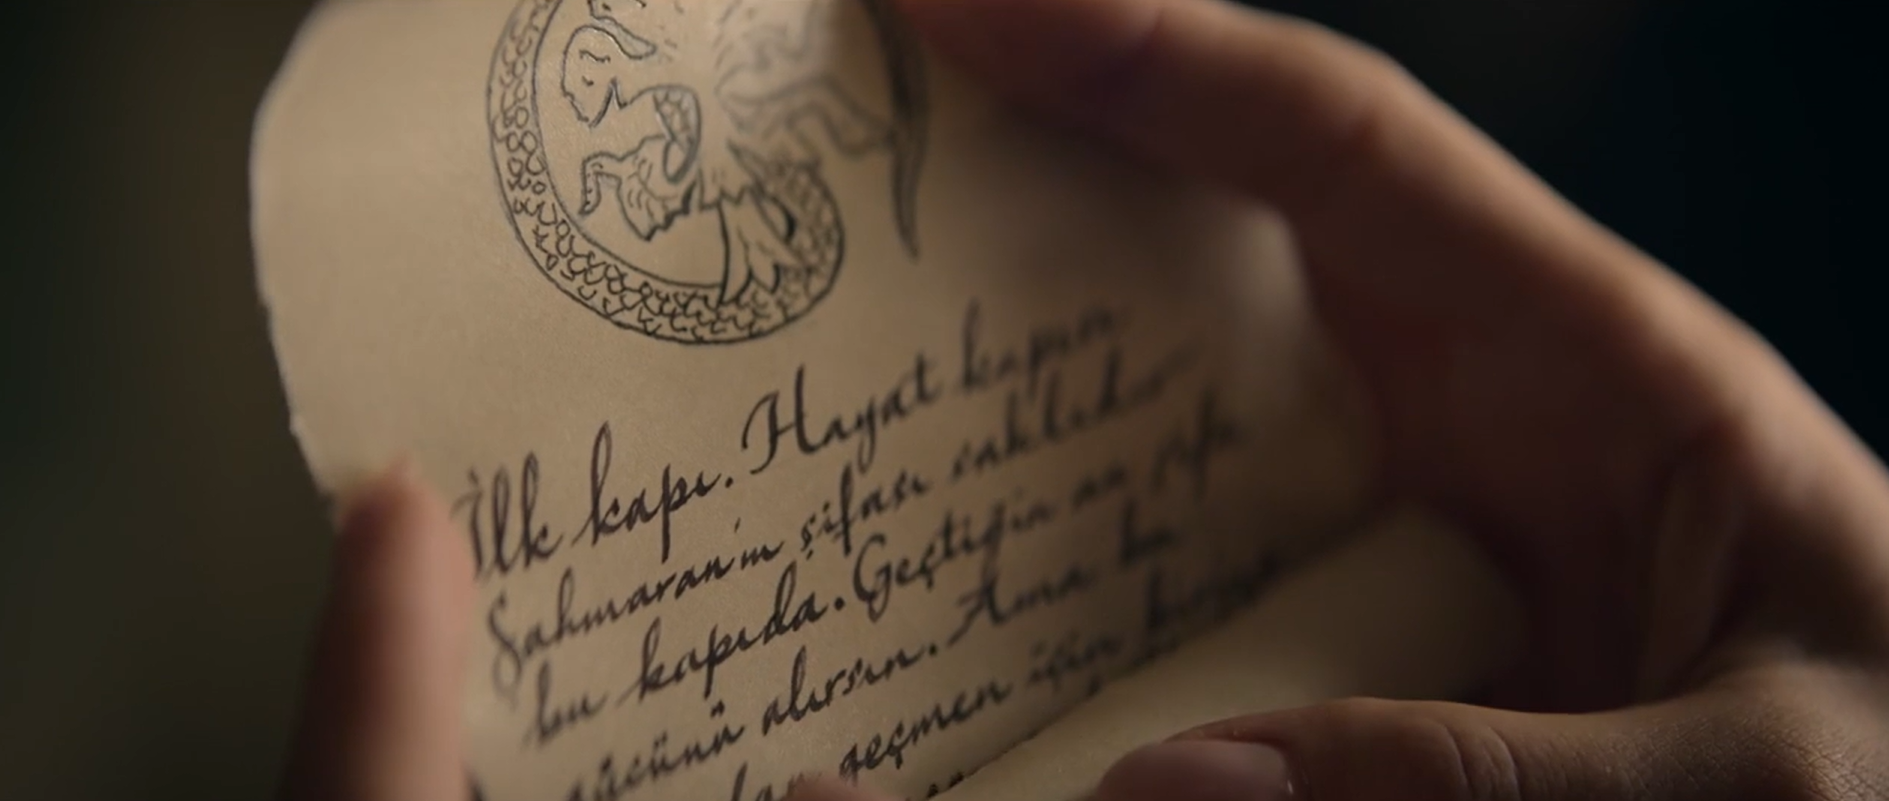 İlk kapı. Hayat kapısı.
Şahmaran'ın şifası saklıdır
bu kapıda. Geçtiğin an şifa
gücünü alırsın. Ama bu
geçmen için